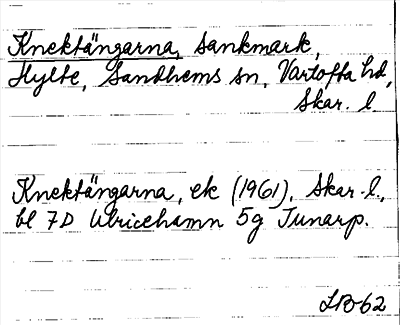 Knektängarna, sankmark,
Hylte, Sandhems sn, Vartofta hd,
Skar. l.
Knektängarna, ek (1961), Skar. l.,
bl 7D Ulricehamn 5g Tunarp.
LB-62